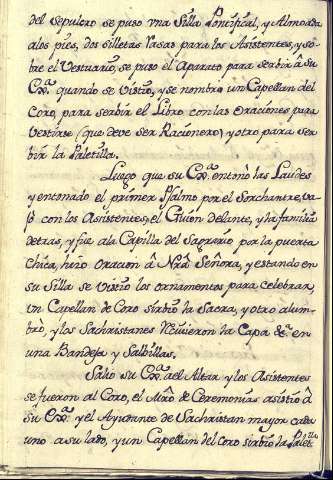 del sepulcro se puso vna Silla Pontifical, y Almoada
alos pies, dos silletas rasas para los Asistentes, y so-
bre el Vestuario, se puso el Aparato para serbir â su
quando se vistio, y se nombro un Capellan del
Coro, para serbir el Libro con las oraciones para
vestirse (que deve ser Racionero) y otro para ser
bir la Paletilla.
Luego que su entonò las Laudes
y entonado el primer Psalmo por el Sochantre, va-
con los Asistentes, el Guion delante, y la familia
detras, y fue ala Capilla del Sagrario por la puerta
chica, hizo oracion â Nrâ Señora, y estando en
su Silla se vistio los ornamentos para celebrar,
un Capellan de Coro sirbio la Sacra, y otro alum-
brò, y los Sachristanes reciuieron la Capa &c. en
una Bandeja y Salbillas.
Salio su al Altar y los Asistentes
se fueron al Coro, el Mrô de Ceremonias asistio â
su y el Ayudante de Sachristan mayor cada
uno a su lado, y un Capellan del coro sirbio la